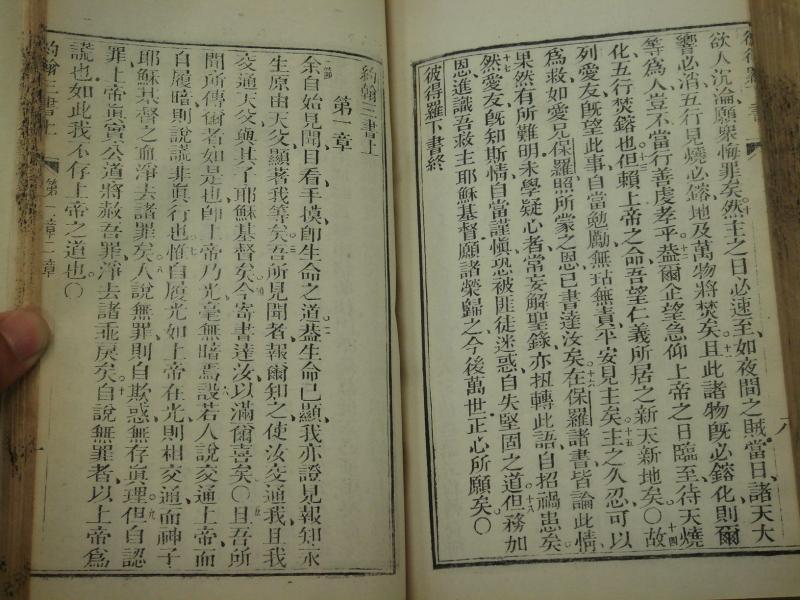 欲人沉淪願衆悔罪矣然主之日必速至如夜間之賊當日諸天大
響必消五行見燒必鎔地及萬物將焚矣且此諸物旣必鎔化則爾
等爲人豈不當行善虔孝乎益爾企望急仰上帝之日臨至待天燒
化五行焚鎔也但賴上帝之命吾望仁義所居之新天新地矣〇故
列愛友旣望此事自當勉勵無玷無責平安見主矣主之久忍可以
爲救如愛兄保羅照所蒙之恩已書達汝矣在保羅諸書皆論此情
果然有所難明未學疑心者常妄解聖錄亦扭轉此語自招禍患矣
然愛友旣知斯情自當謹愼恐被匪徒迷惑自失堅固之道但務加
恩進識吾救主耶穌基督願諸榮歸之今後萬世正心所願矣〇
彼得羅下書終
八
約翰三書上
第一章
余自始見聞目看手摸卽生命之道蓋生命已顯我亦證見報知永
生原由天父顯著我等矣吾所見聞者報爾知之使汝交通我且我
交通天父與其子耶穌基督矣今寄書達汝以滿爾喜矣〇且吾所
聞所傳爾者如是也卽上帝乃光毫無暗焉設若人說交通上帝而
自履暗則說謊非眞行也惟自履光如上帝在光則相交通而神子
耶穌基督之血淨去諸罪矣人說無罪則自欺惑無存眞理但自認
罪上帝眞實公道將赦吾罪淨去諸乖戾矣自說無罪者以上帝爲
謊也如此我不存上帝之道也〇
約翰三書上
第一章二章